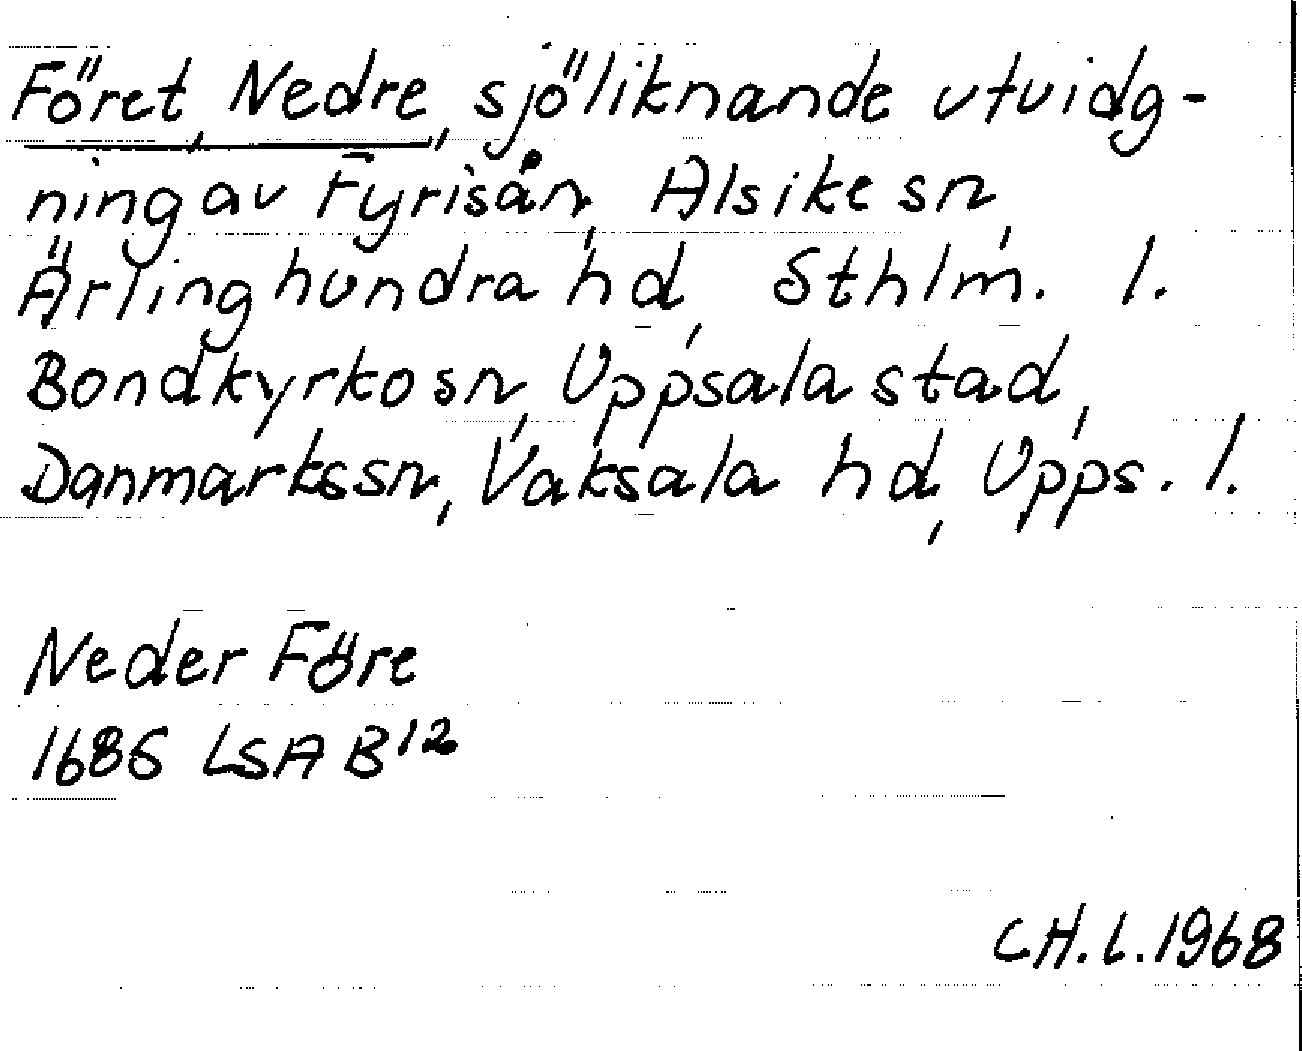 Föret, Nedre, sjöliknande utvidg-
ning av Fyrisån, Alsike sn,
Ärlinghundra hd, Sthlm. l.
Bondkyrko sn, Uppsala stad,
Danmarks sn, Vaksala hd, Upps. l.
Neder Före
1686 LSA B¹²
CH.L.1968